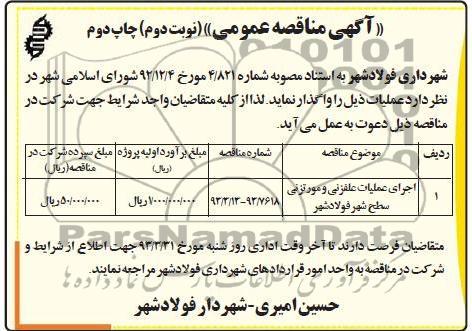 ((آگهی مناقصه عمومی)) (نوبت دوم) چاپ دوم
شهرداری فولادشهر به استناد مصوبه شماره ۴/۸۲۱ مورخ ۹۲/۱۲/۴ شورای اسلامی شهر در
نظر دارد عملیات ذیل را واگذار نماید. لذا از کلیه متقاضیان واجد شرایط جهت شرکت در
مناقصه ذیل دعوت به عمل می آید.
ردیف موضوع مناقصه شماره مناقصه مبلغ برآورد اولیه پروژه (ریال) مبلغ سپرده شرکت در مناقصه (ریال)
۱ اجرای عملیات علفزنی و مورتزنی سطح شهر فولادشهر ۹۳/۷۶۱۸-۹۳/۲/۱۳ ۱/۰۰۰/۰۰۰/۰۰۰ریال ۵۰/۰۰۰/۰۰۰ریال
متقاضیان فرصت دارند تا آخر وقت اداری روز شنبه مورخ ۹۳/۳/۳۱ جهت اطلاع از شرایط و
شرکت در مناقصه به واحد امور قراردادهای شهرداری فولادشهر مراجعه نمایند.
حسین امیری-شهردار فولادشهر
ParsNamadData